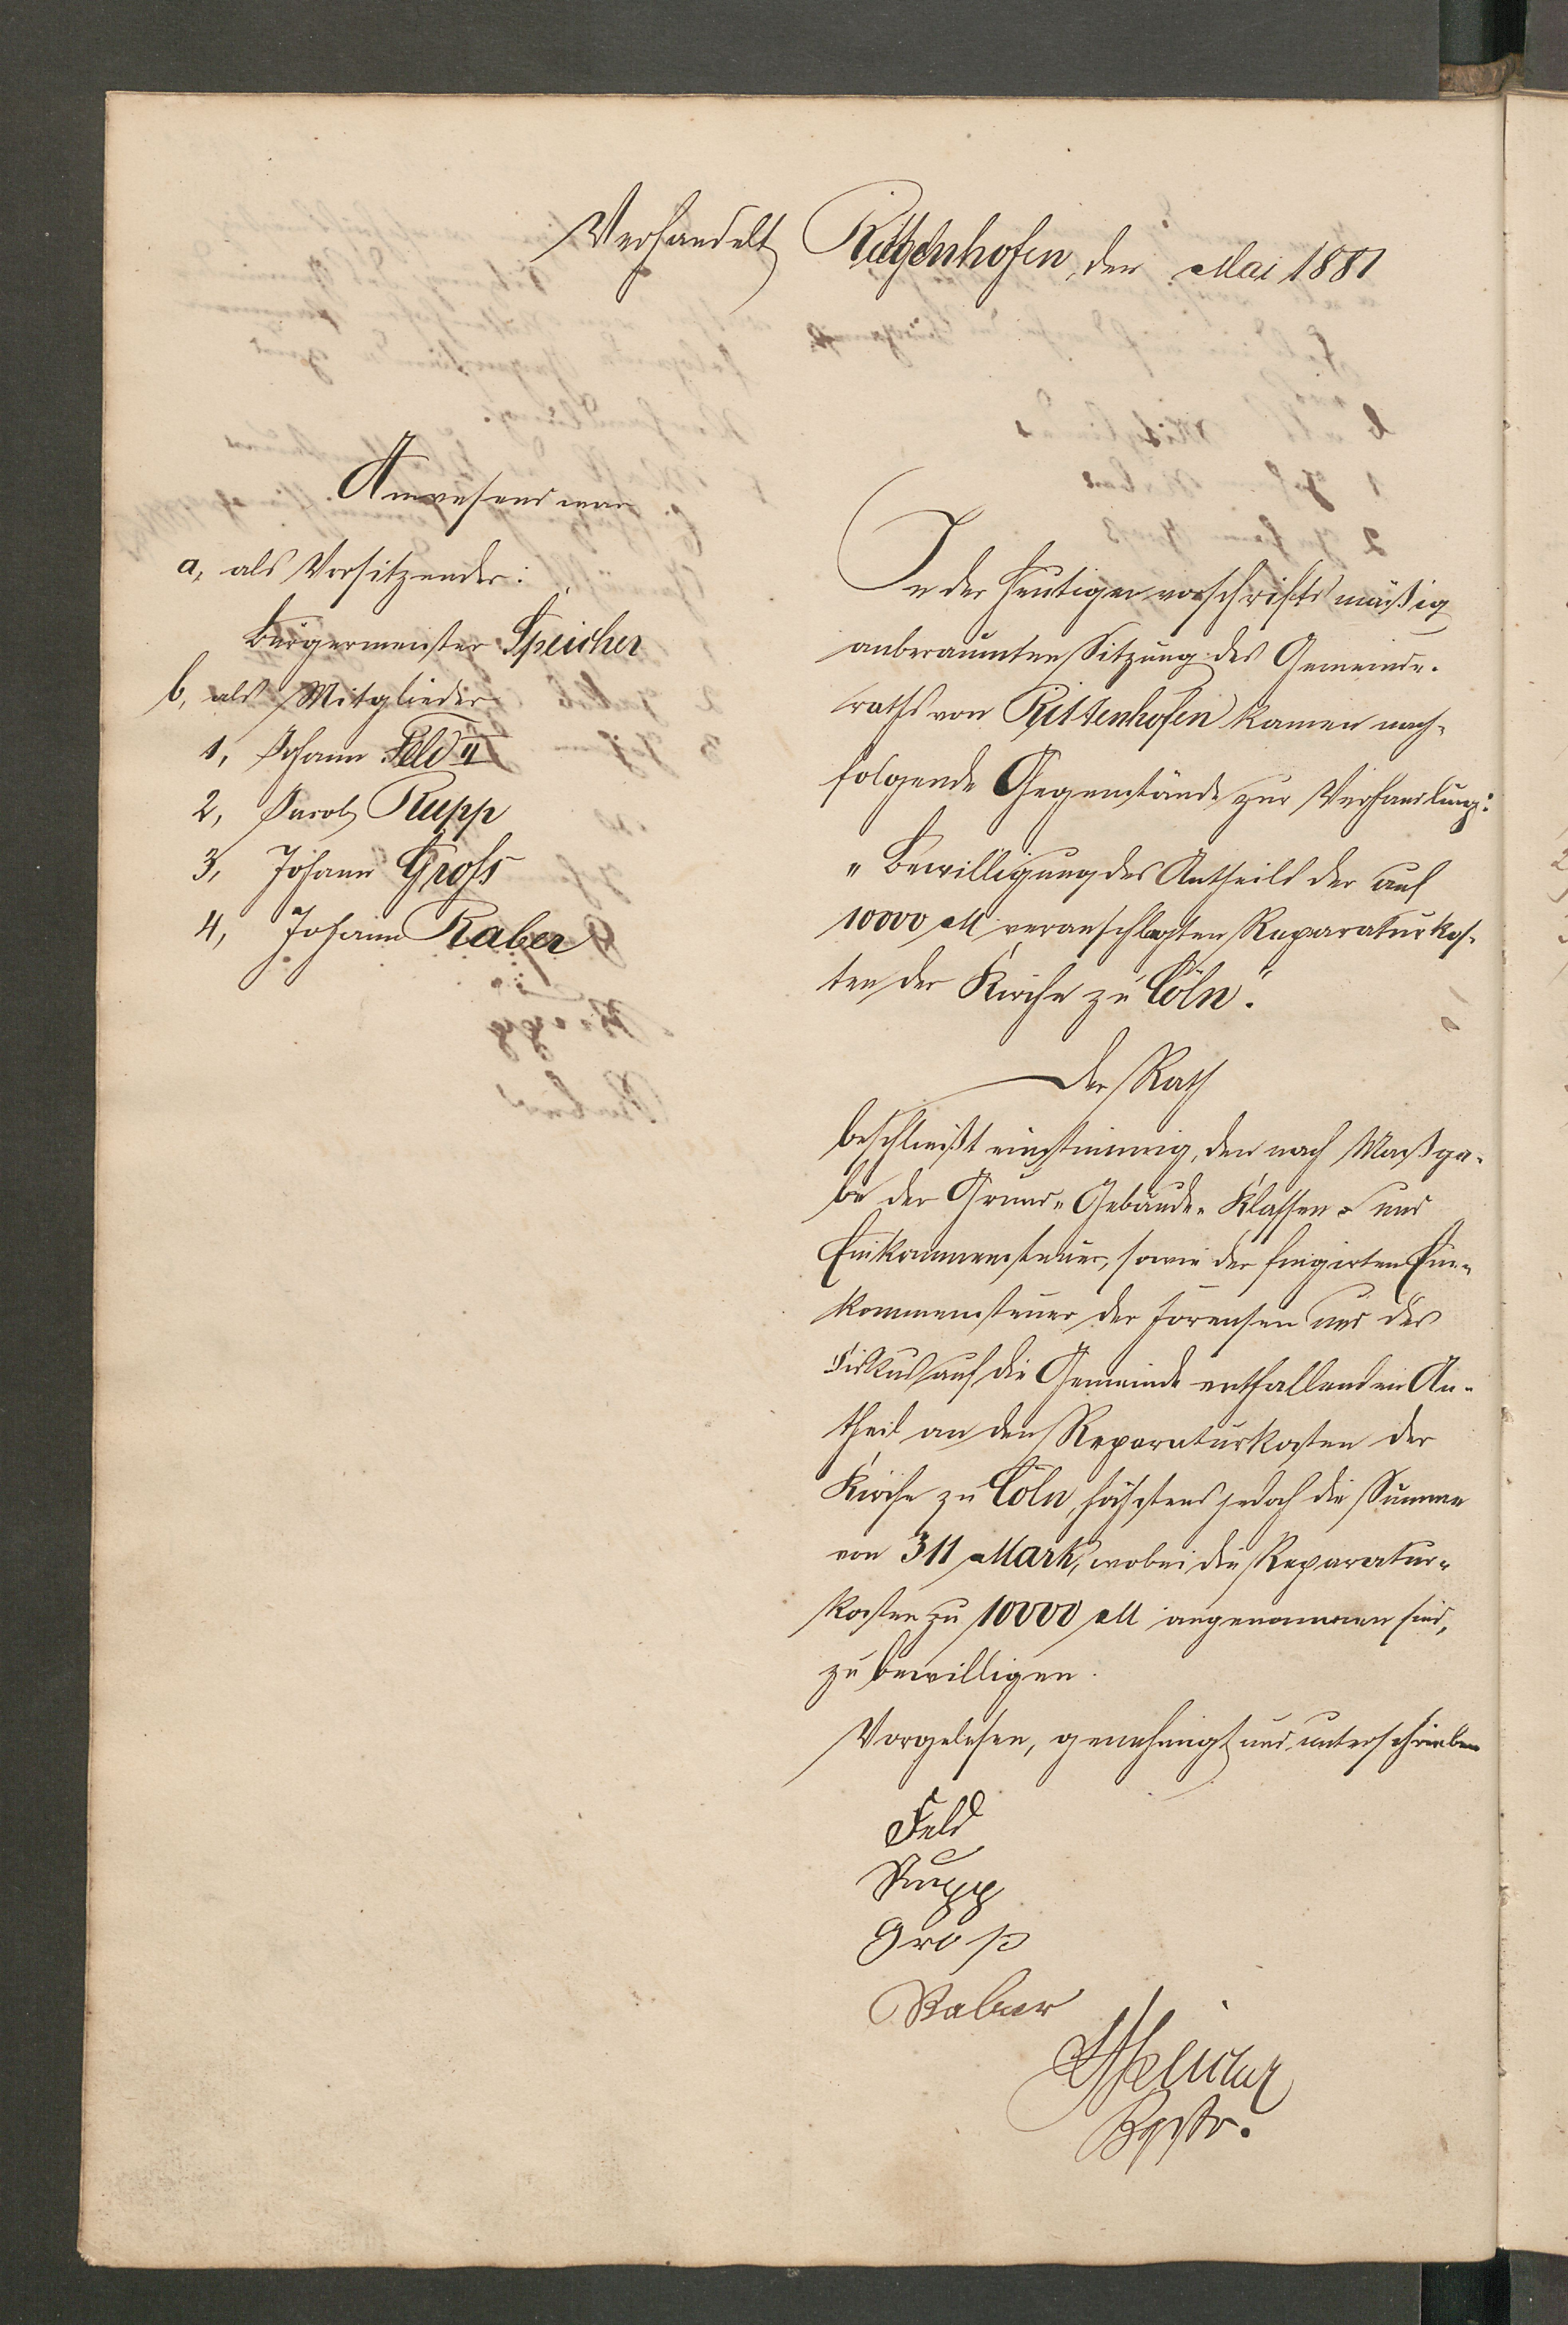 Verhandelt Rittenhofen, den Mai 1881
Anwesend war
a, als Vorsitzender:
Bürgermeister Speicher
b, als Mitglieder
1, Johann Feld II
2, Jacob Rupp
3, Johann Groß
4, Johann Raber
In der heutigen vorschriftsmäßig
anberaumten Sitzung des Gemeinde-
raths von Rittenhofen kamen nach-
folgende Gegenstände zur Verhandlung:
"Bewilligung des Antheils der auf
10000 M veranschlagten Reparaturkos-
ten der Kirche zu Cöln".
Der Rath
beschließt einstimmig, den nach Maßga-
be der Grund- Gebäude- Klassen- und
Einkommensteuer, sowie der fingirten Ein-
kommensteuer der Forensen und des
Fiskus auf die Gemeinde entfallenden An-
theil an den Reparaturkosten der
Kirche zu Cöln, höchstens jedoch die Summe
von 311 Mark, wobei die Reparatur-
kosten zu 10000 M angenommen sind,
zu bewilligen.
Vorgelesen, genehmigt und unterschrieben
Feld
Rupp
Groß
Raber
Speicher
Bgstr.